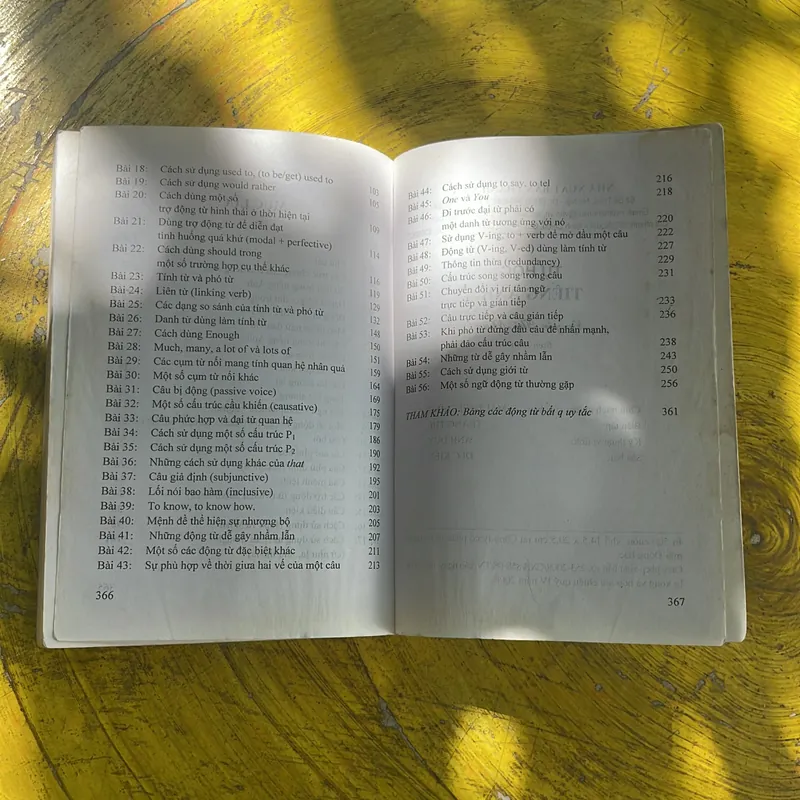 Bài 18: Cách sử dụng used to, (to be/get) used to 103
Bài 19: Cách sử dụng would rather 105
Bài 20: Cách dùng một số
trợ động từ hình thái ở thời hiện tại 109
Bài 21: Dùng trợ động từ để diễn đạt
tình huống quá khứ (modal + perfective) 114
Bài 22: Cách dùng should trong
một số trường hợp cụ thể khác 116
Bài 23: Tính từ và phó từ 119
Bài 24: Liên từ (linking verb)
Bài 25: Các dạng so sánh của tính từ và phó từ 126
Bài 26: Danh từ dùng làm tính từ 132
Bài 27: Cách dùng Enough 148
Bài 28: Much, many, a lot of và lots of 150
Bài 29: Các cụm từ nối mang tính quan hệ nhân quả 151
Bài 30: Một số cụm từ nối khác 159
Bài 31: Câu bị động (passive voice) 164
Bài 32: Một số cấu trúc cầu khiến (causative) 169
Bài 33: Câu phức hợp và đại từ quan hệ 175
Bài 34: Cách sử dụng một số cấu trúc P1 179
Bài 35: Cách sử dụng một số cấu trúc P2 186
Bài 36: Những cách sử dụng khác của that 190
Bài 37: Câu giả định (subjunctive) 192
Bài 38: Lối nói bao hàm (inclusive) 195
Bài 39: To know, to know how. 201
Bài 40: Mệnh đề thể hiện sự nhượng bộ 203
Bài 41: Những động từ dễ gây nhầm lẫn 205
Bài 42: Một số các động từ đặc biệt khác 207
Bài 43: Sự phù hợp về thời giưa hai vế của một câu 211
213
366
Bài 44: Cách sử dụng to say, to tel 216
Bài 45: One và You 218
Bài 46: Đi trước đại từ phải có
một danh từ tương ứng với nó 220
Bài 47: Sử dụng V-ing, to + verb để mở đầu một câu 222
Bài 48: Động từ (V-ing, V-ed) dùng làm tính từ 227
Bài 49: Thông tin thừa (redundancy) 229
Bài 50: Cấu trúc song song trong câu 231
Bài 51: Chuyển đổi vị trí tân ngữ
trực tiếp và gián tiếp 233
Bài 52: Câu trực tiếp và câu gián tiếp 236
Bài 53: Khi phó từ đứng đầu câu để nhấn mạnh,
phải đảo cấu trúc câu 238
Bài 54: Những từ dễ gây nhầm lẫn 243
Bài 55: Cách sử dụng giới từ 250
Bài 56: Một số ngữ động từ thường gặp 256
THAM KHẢO: Bảng các động từ bất q uy tắc 361
367